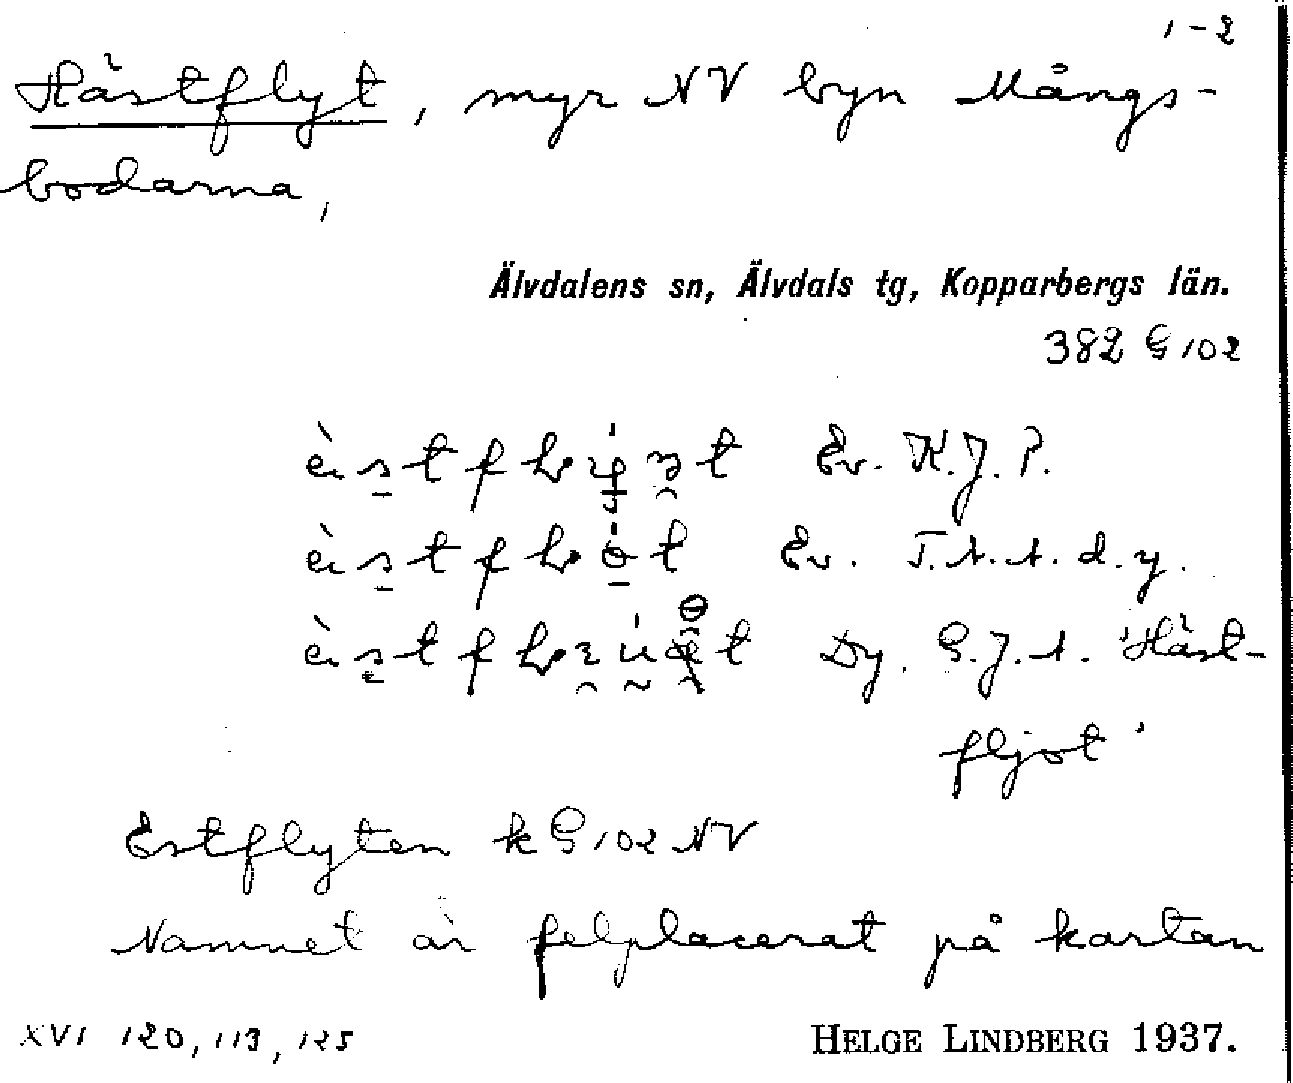 1-2
Hästflyt, myr NV byn Mångs-
bodarna,
Älvdalens sn, Älvdals tg, Kopparbergs län.
382 G 102
Ev. K.J.P.
Ev.
Dy. G.J.A. 'Häst-
fljot'
Estflyten k G 102 NV
Namnet är felplacerat på kartan
XVI 120, 113, 125
HELGE LINDBERG 1937.